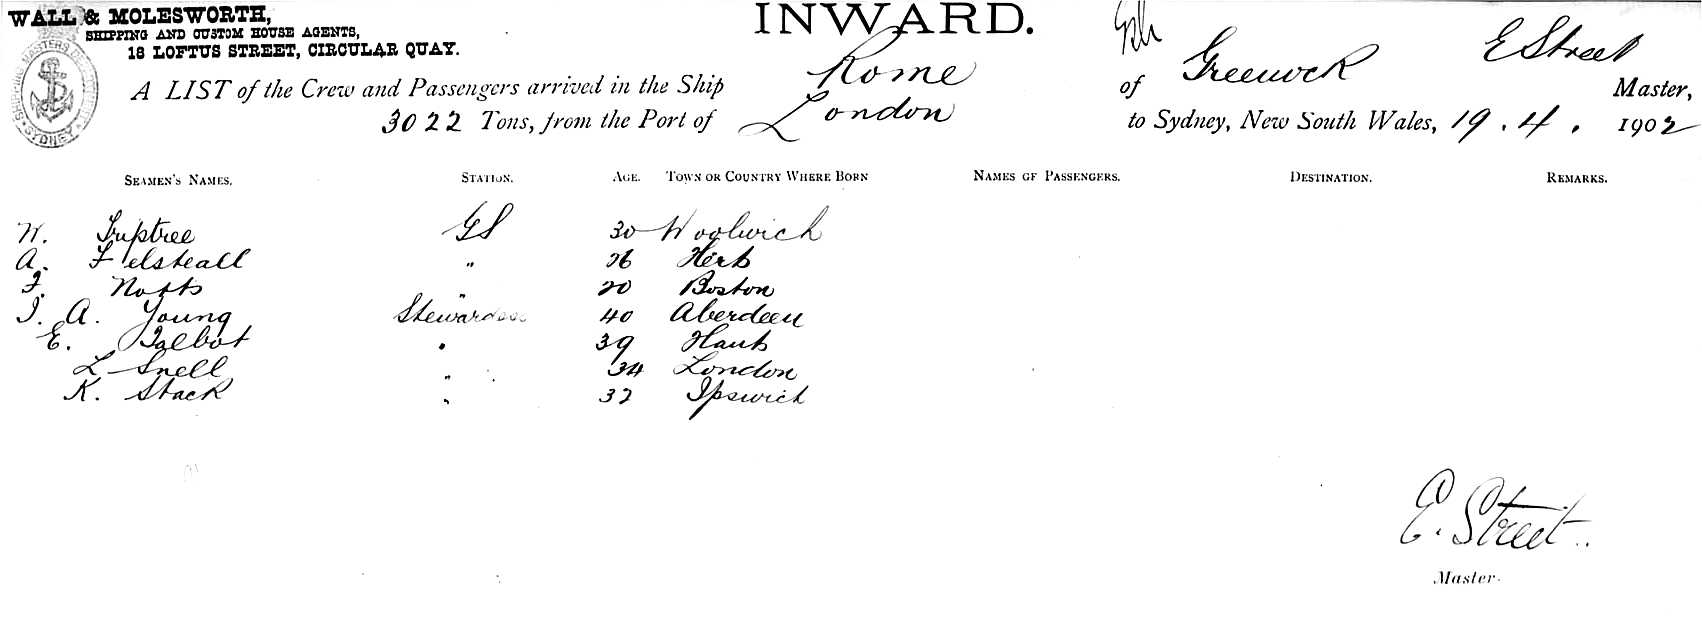 WALL & MOLESWORTH,
SHIPPING AND CUSTOM HOUSE AGENTS,
18 LOFTUS STREET, CIRCULAR QUAY.
INWARD.
SHIPPING MASTERS DEPARTMENT SYDNEY
A LIST of the Crew and Passengers arrived in the Ship Rome of Greenock E Street Master,
3022 Tons, from the Port of London to Sydney, New South Wales, 19.4. 1902
SEAMEN'S NAMES. STATION. AGE. TOWN OR COUNTRY WHERE BORN NAMES OF PASSENGERS. DESTINATION. REMARKS.
W. Triptree GS 30 Woolwich
A. Felsteall " 26 Herts
F. Notts " 20 Boston
A. Young Stewardess 40 Aberdeen
E. Talbot " 39 Hants
L Snell " 34 London
K. Stack " 32 Ipswich
E. Street
Master.